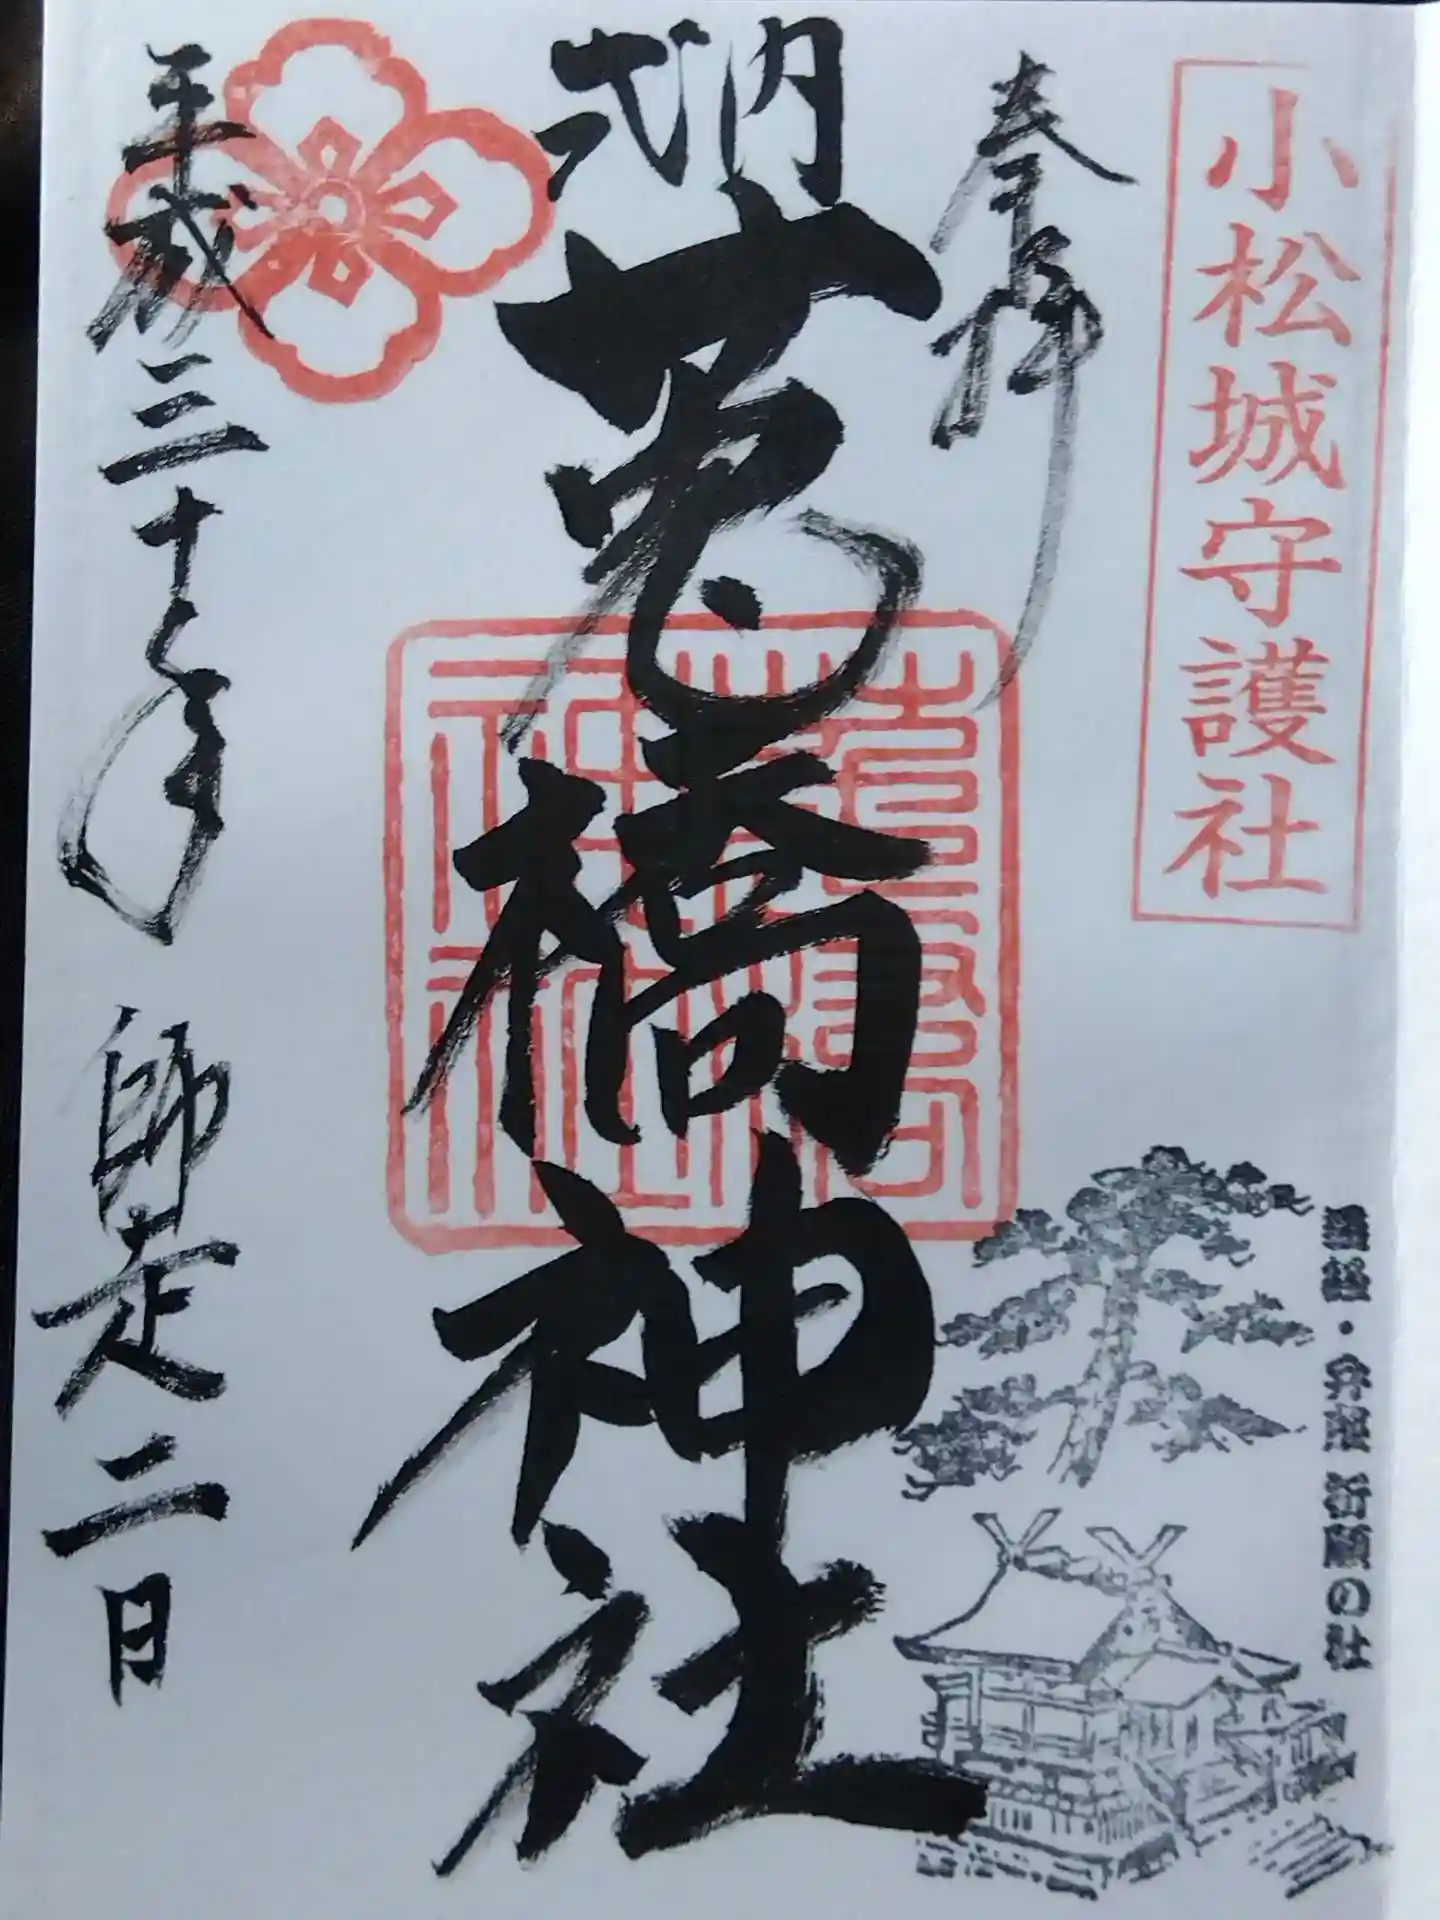 小松城守護社
奉拝
式内
莵橋神社
平成三十年
師走二日
義経・弁慶 祈願の社
莵橋神社